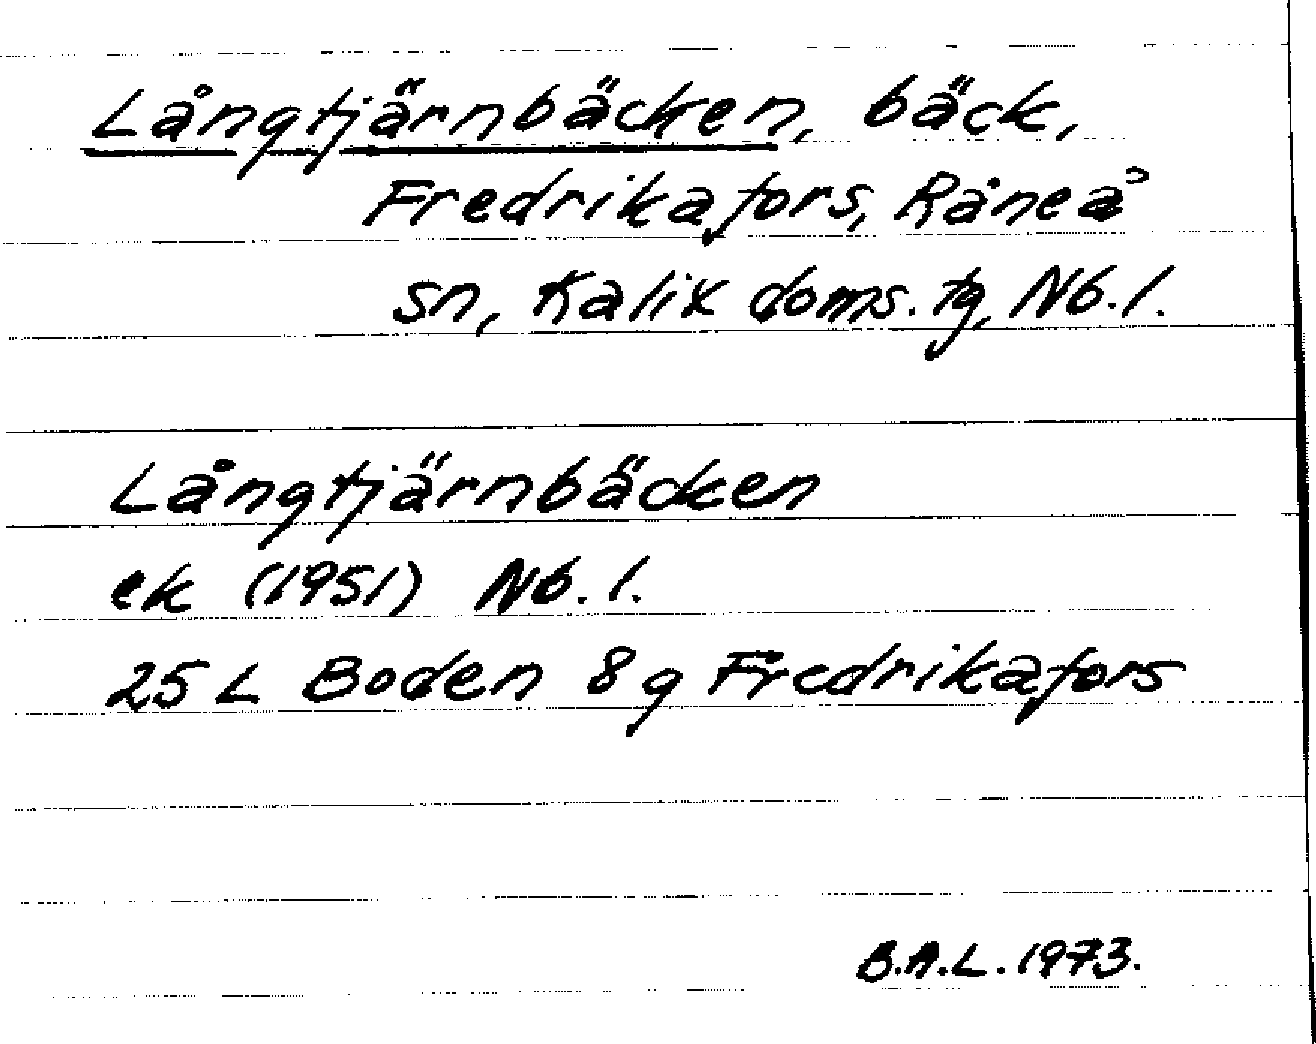 Långtjärnbäcken, bäck,
Fredrikafors, Råneå
sn, Kalix doms. tg, Nb. l.
Långtjärnbäcken
ek (1951) Nb. l.
25 L Boden 8 g Fredrikafors
B.A.L. 1973.